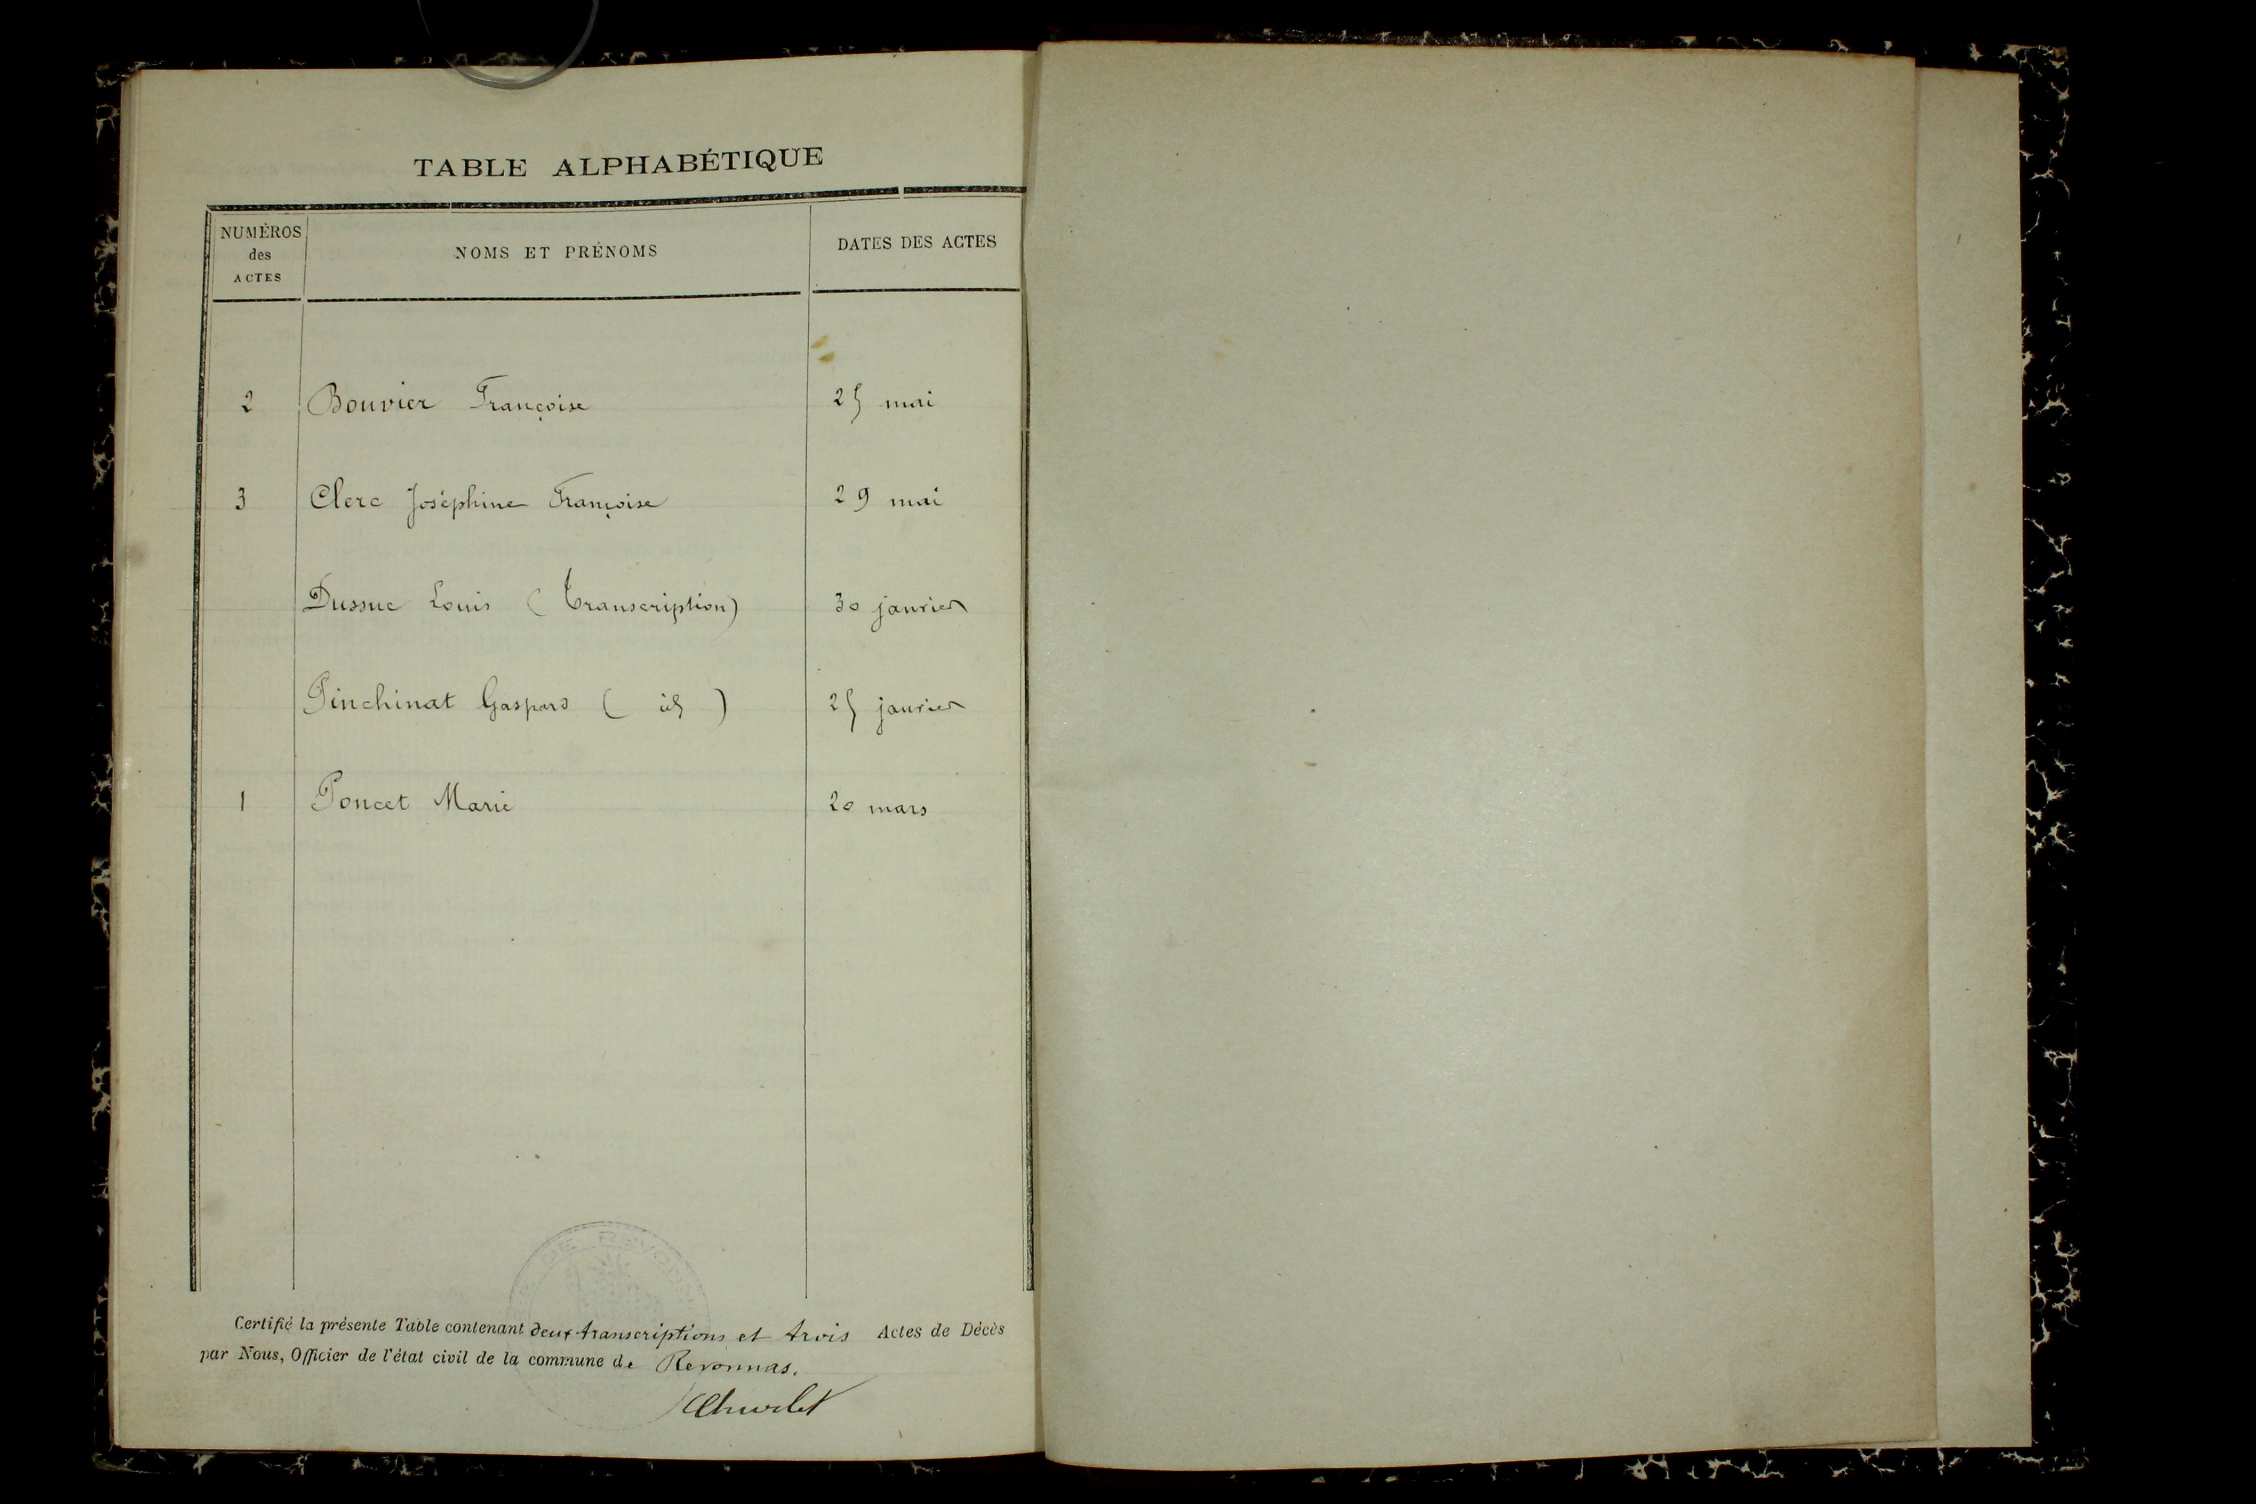 TABLE ALPHABÉTIQUE
NUMÉROS des ACTES NOMS ET PRÉNOMS DATES DES ACTES
2 Bouvier Françoise 25 mai
3 Clerc Joséphine Françoise 29 mai
Dussuc Louis (Transcription) 30 janvier
Pinchinat Gaspard ( id ) 25 janvier
1 Poncet Marie 20 mars
DE REVONNAS
Certifié la présente Table contenant deux transcriptions et trois Actes de Décès
par Nous, Officier de l'état civil de la commune de Revonnas.